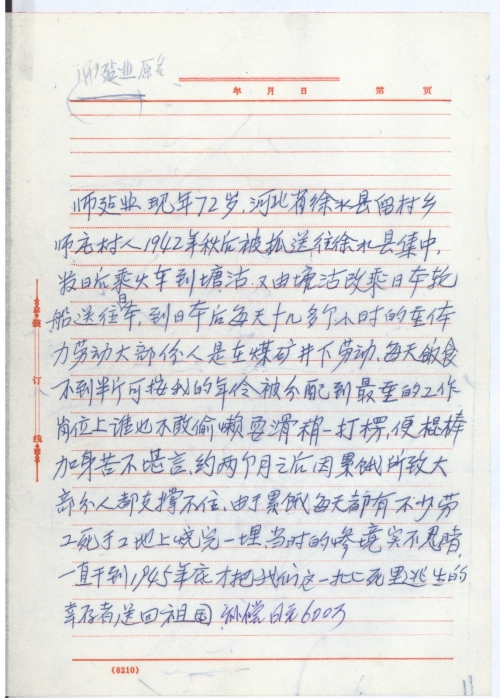 师廷业原名
年 月 日 第 页
师廷业 现年72岁,河北省徐水县留村乡
师庄村人1942年秋后被抓送往徐水县集中,
数日后乘火车到塘沽.又由塘沽改乘日本轮
船送往日本,到日本后每天十几多个小时的重体
力劳动大部份人是在煤矿井下劳动,每天的食
不到半斤可按我的年令被分配到最重的工作
岗位上谁也不敢偷懒耍滑稍一打楞,便棍棒
加身苦不堪言,约两个月之后因累饿所致大
部分人都支撑不住,由于累饿每天都有不少劳
工死于工地上烧完一埋当时的惨境实不忍睹,
一直干到1945年底才把我们这一批死里逃生的
幸存者送回祖国 补偿日元600万
装
订
线
(8210)